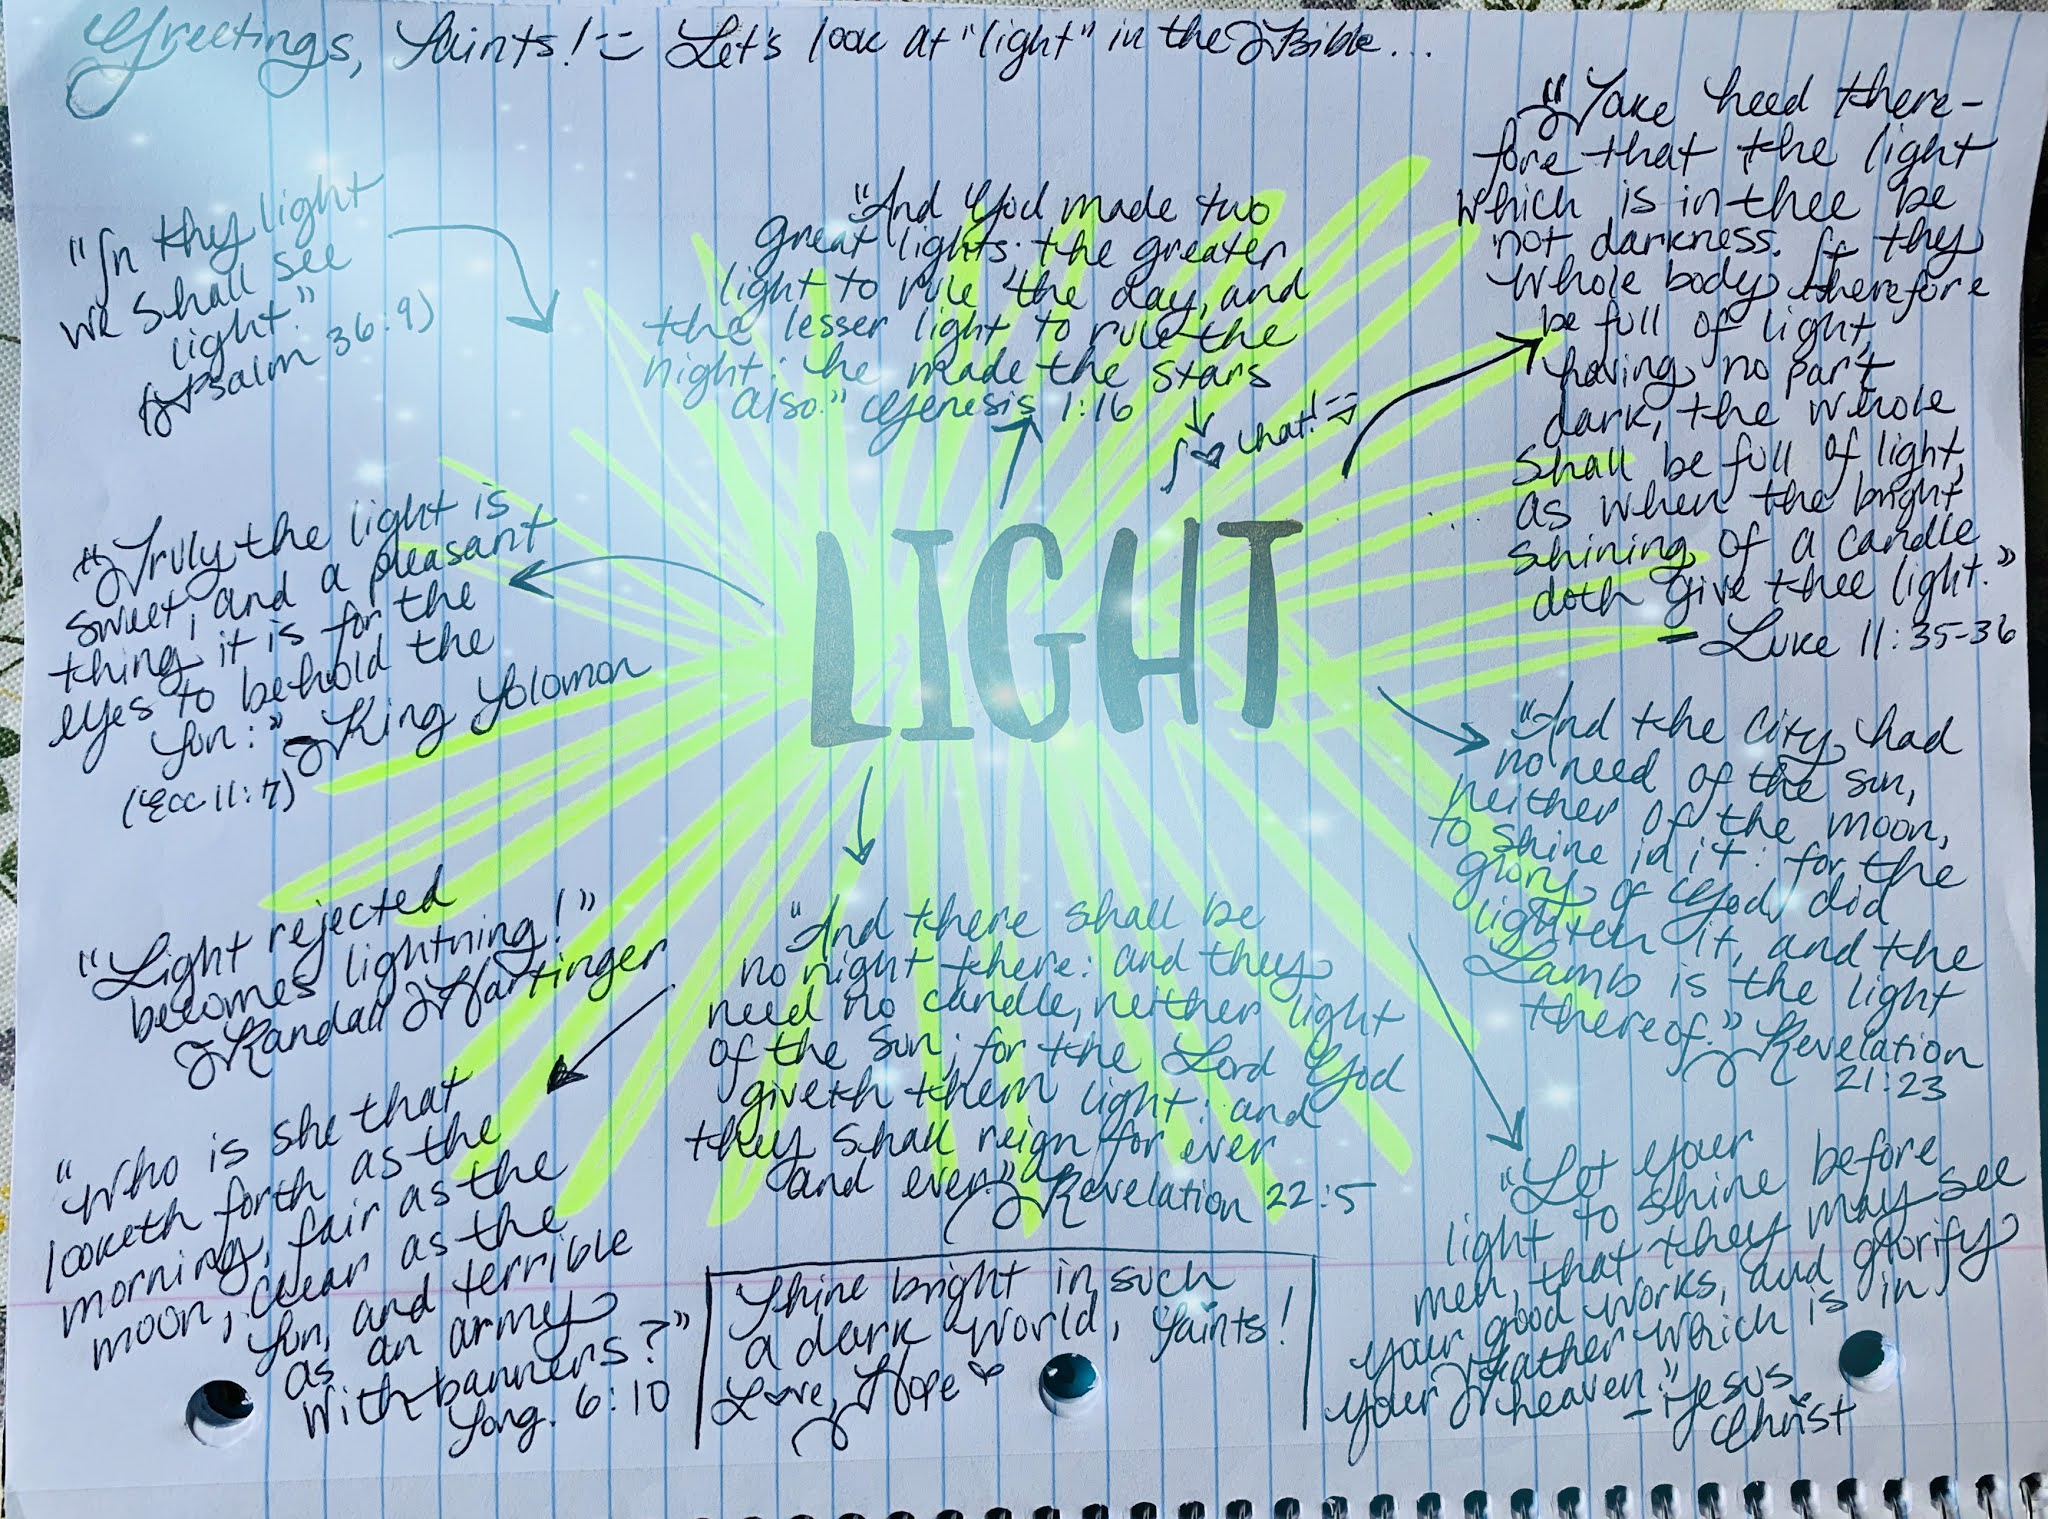 Greetings, Saints! Let's look at "light" in the Bible...
"In thy light
we shall see
light."
(Psalm 36:9)
"And God made two
great lights: the greater
light to rule the day, and
the lesser light to rule the
night: he made the stars
also." Genesis 1:16
I ♡ that!
"Take heed there-
fore that the light
which is in thee be
not darkness. If thy
whole body therefore
be full of light,
having no part
dark, the whole
shall be full of light,
as when the bright
shining of a candle
doth give thee light."
- Luke 11:35-36
"Truly the light is
sweet, and a pleasant
thing it is for the
eyes to behold the
sun:" - King Solomon
(Ecc 11:7)
LIGHT
"And the city had
no need of the sun,
neither of the moon,
to shine in it: for the
glory of God did
lighten it, and the
Lamb is the light
thereof." Revelation
21:23
"Light rejected
becomes lightning!"
Randall Hartinger
"And there shall be
no night there: and they
need no candle, neither light
of the sun; for the Lord God
giveth them light: and
they shall reign for ever
and ever." Revelation 22:5
"Who is she that
looketh forth as the
morning, fair as the
moon, clear as the
sun, and terrible
as an army
with banners?"
Song. 6:10
"Let your
light so shine before
men, that they may see
your good works, and glorify
your Father which is in
heaven." - Jesus
Christ
Shine bright in such
a dark world, Saints!
Love, Hope ♡